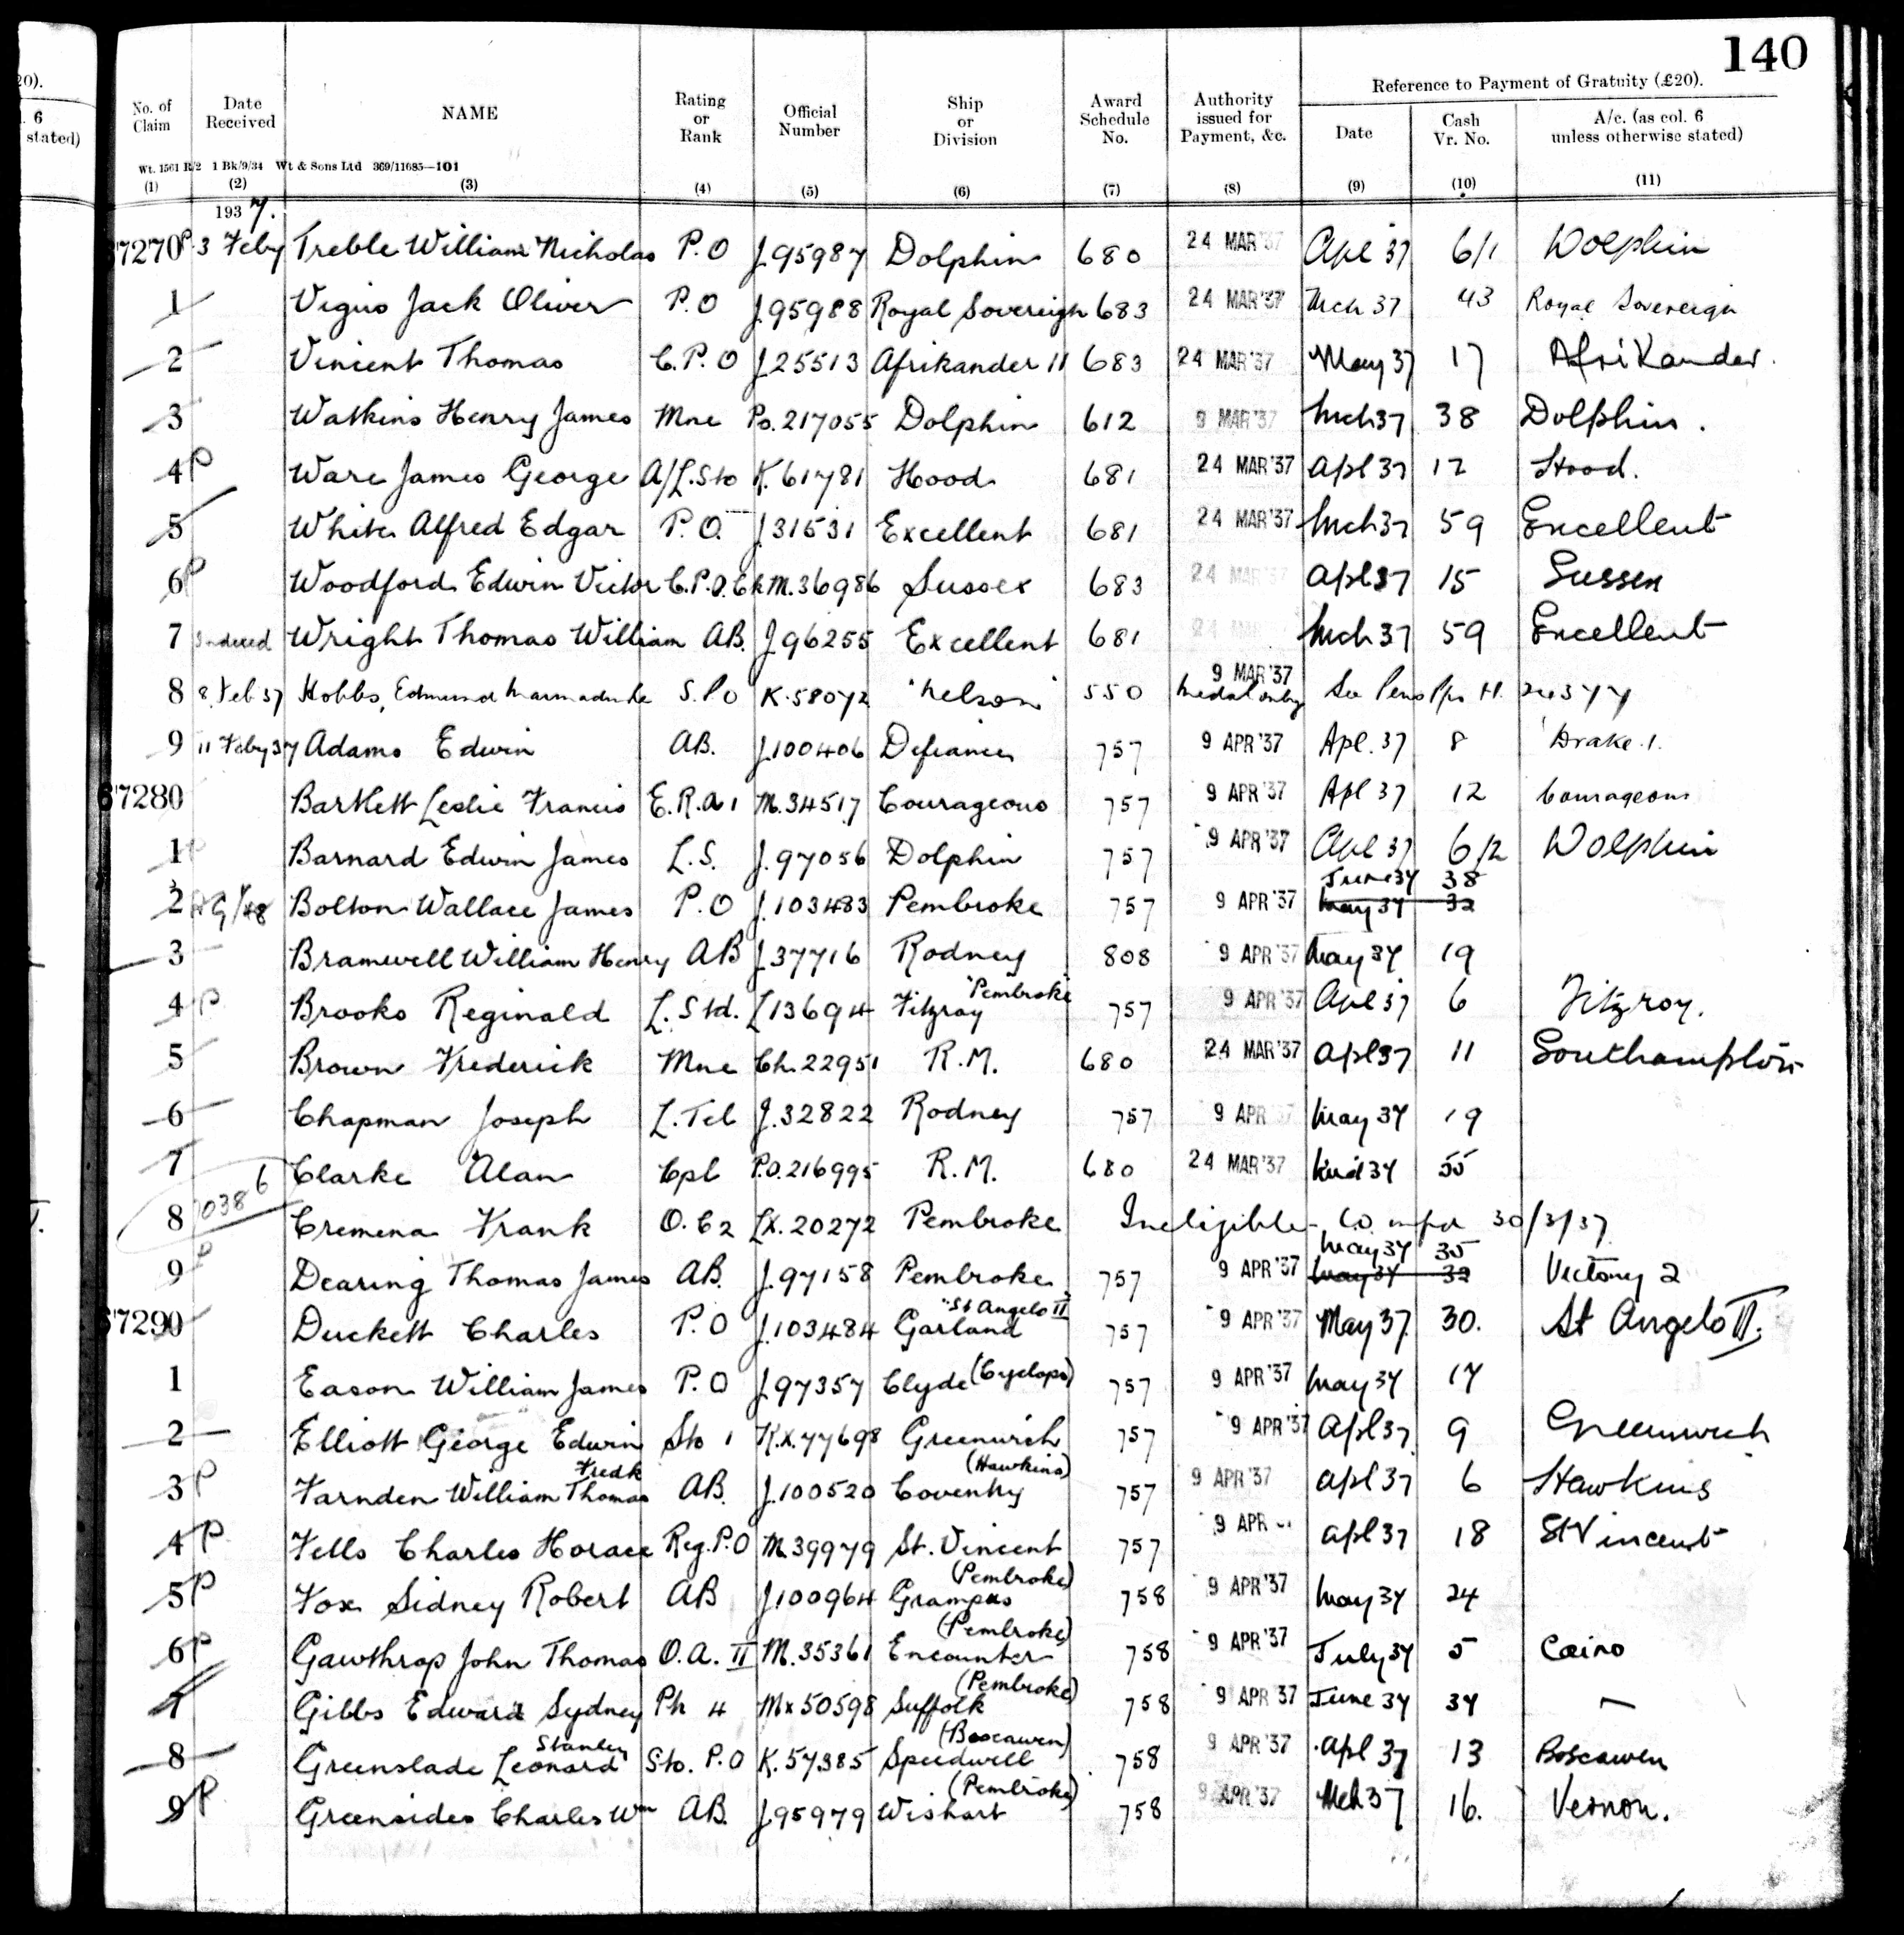 20).
l. 6
stated)
140
No. of Claim
Date Received
NAME
Rating or Rank
Official Number
Ship or Division
Award Schedule No.
Authority issued for Payment, &c.
Reference to Payment of Gratuity (£20).
Date
Cash Vr. No.
A/c. (as col. 6 unless otherwise stated)
Wt. 1561 R/2 1 Bk/9/34 Wt & Sons Ltd 369/11685—101
(1) (2) (3) (4) (5) (6) (7) (8) (9) (10) (11)
1937.
67270 P. 3 Feby Treble William Nicholas P.O J.95987 Dolphin 680 24 MAR '37 Apl 37 6/1 Dolphin
1 Vigus Jack Oliver P.O J.95988 Royal Sovereign 683 24 MAR '37 Mch 37 43 Royal Sovereign
2 Vincent Thomas C.P.O J.25513 Afrikander II 683 24 MAR '37 May 37 17 Afrikander.
3 Watkins Henry James Mne Po.217055 Dolphin 612 9 MAR '37 Mch 37 38 Dolphin.
4 P Ware James George A/L.Sto K.61781 Hood 681 24 MAR '37 Apl 37 12 Hood.
5 White Alfred Edgar P.O. J.31531 Excellent 681 24 MAR '37 Mch 37 59 Excellent
6 P Woodford Edwin Victor C.P.O.Ck M.36986 Sussex 683 24 MAR '37 Apl 37 15 Sussex
7 Indexed Wright Thomas William AB. J.96255 Excellent 681 24 MAR Mch 37 59 Excellent
8 8 Feb 37 Hobbs, Edmund Marmaduke S.P.O K.58072 "Nelson" 550 9 MAR '37 Medal only See Pens Pps H.
9 11 Feby 37 Adams Edwin AB. J.100406 Defiance 757 9 APR '37 Apl. 37 8 Drake.1.
67280 Bartlett Leslie Francis E.R.A 1 M.34517 Courageous 757 9 APR '37 Apl 37 12 Courageous
1 P Barnard Edwin James L.S. J.97056 Dolphin 757 9 APR '37 Apl 37 6/2 Dolphin
June 37 38
2 Bolton Wallace James P.O J.103483 Pembroke 757 9 APR '37 May 37 32
3 Bramwell William Henry AB J.37716 Rodney 808 9 APR '37 May 37 19
"Pembroke
4 P Brooks Reginald L.Std. L13694 Fitzroy 757 9 APR '37 Apl 37 6 Fitzroy.
5 Brown Frederick Mne Ch.22951 R.M. 680 24 MAR '37 Apl 37 11 Southampton
6 Chapman Joseph L.Tel J.32822 Rodney 757 9 APR '37 May 37 19
7 Clarke Alan Cpl P.O.216995 R.M. 680 24 MAR '37 37 55
8 10386 Cremena Frank O.C2 LX.20272 Pembroke Ineligible - 30/3/37.
May 37 35
9 P Dearing Thomas James AB. J.97158 Pembroke 757 9 APR '37 May 37 32 Victory 2
"St Angelo II
67290 Duckett Charles P.O J.103484 Garland 757 9 APR '37 May 37. 30. St Angelo II.
1 Eason William James P.O J.97357 Clyde (Cyclops) 757 9 APR '37 May 37 17
2 Elliott George Edwin Sto 1 K.X.77698 Greenwich 757 9 APR '37 Apl 37 9 Greenwich
Fredk (Hawkins)
3 P Farnden William Thomas AB. J.100520 Coventry 757 9 APR '37 Apl 37 6 Hawkins
4 P Fells Charles Horace Reg.P.O M.39979 St. Vincent 757 9 APR Apl 37 18 St Vincent
(Pembroke)
5 P Fox Sidney Robert AB J.100964 Grampus 758 9 APR '37 May 37 24
(Pembroke)
6 P Gawthrop John Thomas O.A. II M.35361 Encounter 758 9 APR '37 July 37 5 Cairo
(Pembroke)
7 Gibbs Edward Sydney Ph 4 Mx 50598 Suffolk 758 9 APR 37 June 37 34 —
Stanley (Boscawen)
8 Greenslade Leonard Sto. P.O K.57385 Speedwell 758 9 APR '37 Apl 37 13 Boscawen
(Pembroke)
9 P Greensides Charles Wm AB. J.95979 Wishart 758 9 APR '37 Mch 37 16. Vernon.